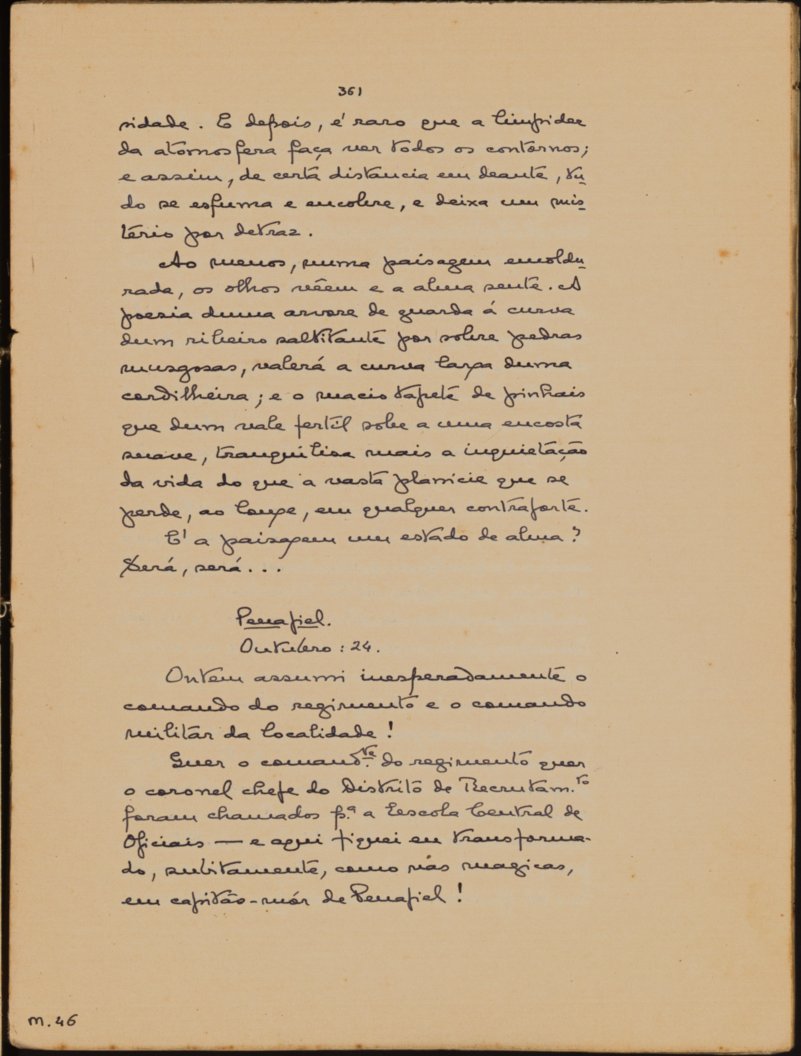 361
sidade. E depois, é raro que a limpidez
da atomosfera faça ver todos os contôrnos;
e assim, de certa distancia em deante, tu-
do se esfuma e encobre, e deixa um mis-
tério por detraz.
Ao menos, numa paisagem emoldu-
rada, os olhos vêem e a alma sente. A
poesia duma arvore de guarda á curva
dum ribeiro saltitante por sobre pedras
musgosas, valerá a curva larga duma
cordilheira; e o macio tapete de pinhais
que dum vale fertil sobe a uma encosta
suave, tranquilisa mais a inquietação
da vida do que a vasta planicie que se
perde, ao longe, em qualquer contraforte.
E' a paisagem um estado de alma?
Será, será...
Penafiel.
Outubro: 24.
Ontem assumi inesperadamente o
comando do regimento e o comando
militar da localidade!
Quer o comand.te do regimento quer
o coronel chefe do Distrito de Recrutam.to
foram chamados p.a a Escola Central de
Oficiais — e aqui fiquei eu transforma-
do, subitamente, como nas magicas,
em capitão-mór de Penafiel!
m. 46